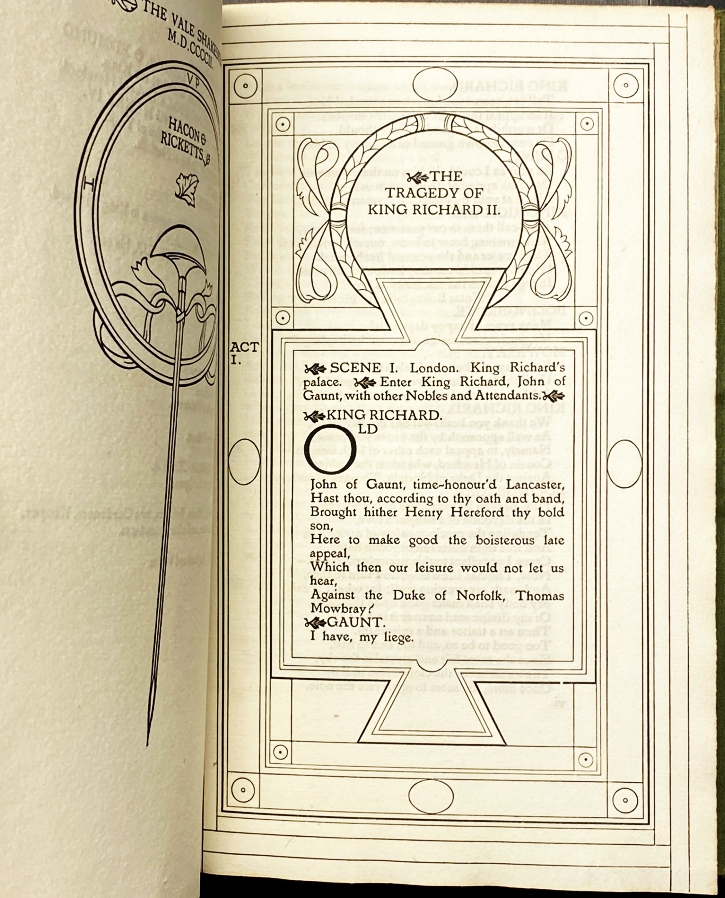 THE VALE
M.D.CCCCII
V P
HACON &
RICKETTS,
I
THE
TRAGEDY OF
KING RICHARD II.
ACT
I.
SCENE I. London. King Richard's
palace. Enter King Richard, John of
Gaunt, with other Nobles and Attendants.
KING RICHARD.
OLD
John of Gaunt, time-honour'd Lancaster,
Hast thou, according to thy oath and band,
Brought hither Henry Hereford thy bold
son,
Here to make good the boisterous late
appeal,
Which then our leisure would not let us
hear,
Against the Duke of Norfolk, Thomas
Mowbray?
GAUNT.
I have, my liege.